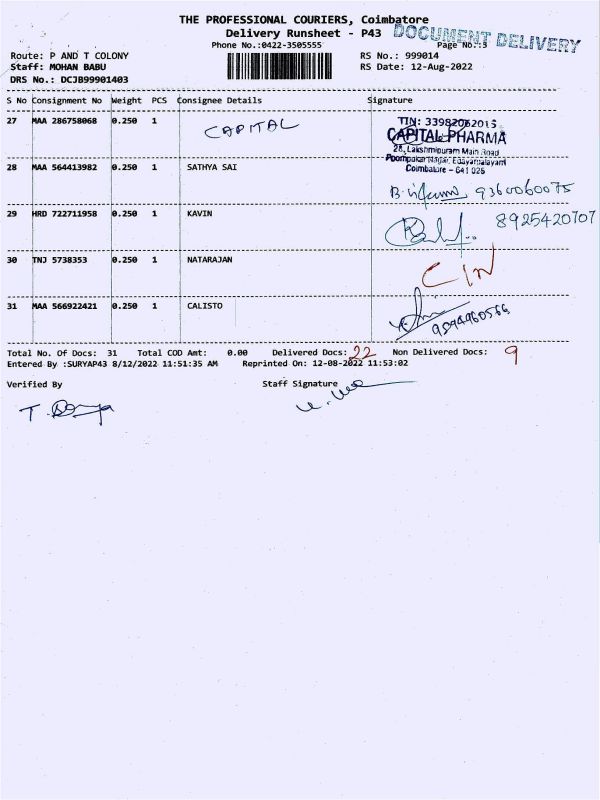 THE PROFESSIONAL COURIERS, Coimbatore
Delivery Runsheet - P43 DOCUMENT DELIVERY
Phone No.:0422-3505555 Page No.:3
Route: P AND T COLONY RS No.: 999014
Staff: MOHAN BABU RS Date: 12-Aug-2022
DRS No.: DCJB99901403
S No Consignment No Weight PCS Consignee Details Signature
27 MAA 286758068 0.250 1 CAPITAL TIN: 33982062015
CAPITAL PHARMA
28, Lakshmipuram Main Road
Poompukar Nagar, Edayarpalayam
Coimbatore - 641 025
28 MAA 564413982 0.250 1 SATHYA SAI
9360060075
29 HRD 722711958 0.250 1 KAVIN 8925420707
30 TNJ 5738353 0.250 1 NATARAJAN CIN
31 MAA 566922421 0.250 1 CALISTO
9894960566
Total No. Of Docs: 31 Total COD Amt: 0.00 Delivered Docs: 22 Non Delivered Docs: 9
Entered By :SURYAP43 8/12/2022 11:51:35 AM Reprinted On: 12-08-2022 11:53:02
Verified By Staff Signature